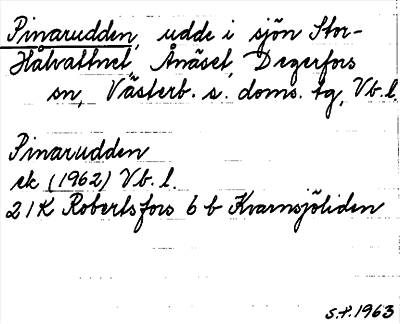 Pinarudden, udde i sjön Stor-
Hålvattnet, Ånäset, Degerfors
sn, Västerb. s. doms. tg, Vb. l.
Pinarudden
ek (1962) Vb. l.
21K Robertsfors 6 b Kvarnsjöliden
S.P. 1963